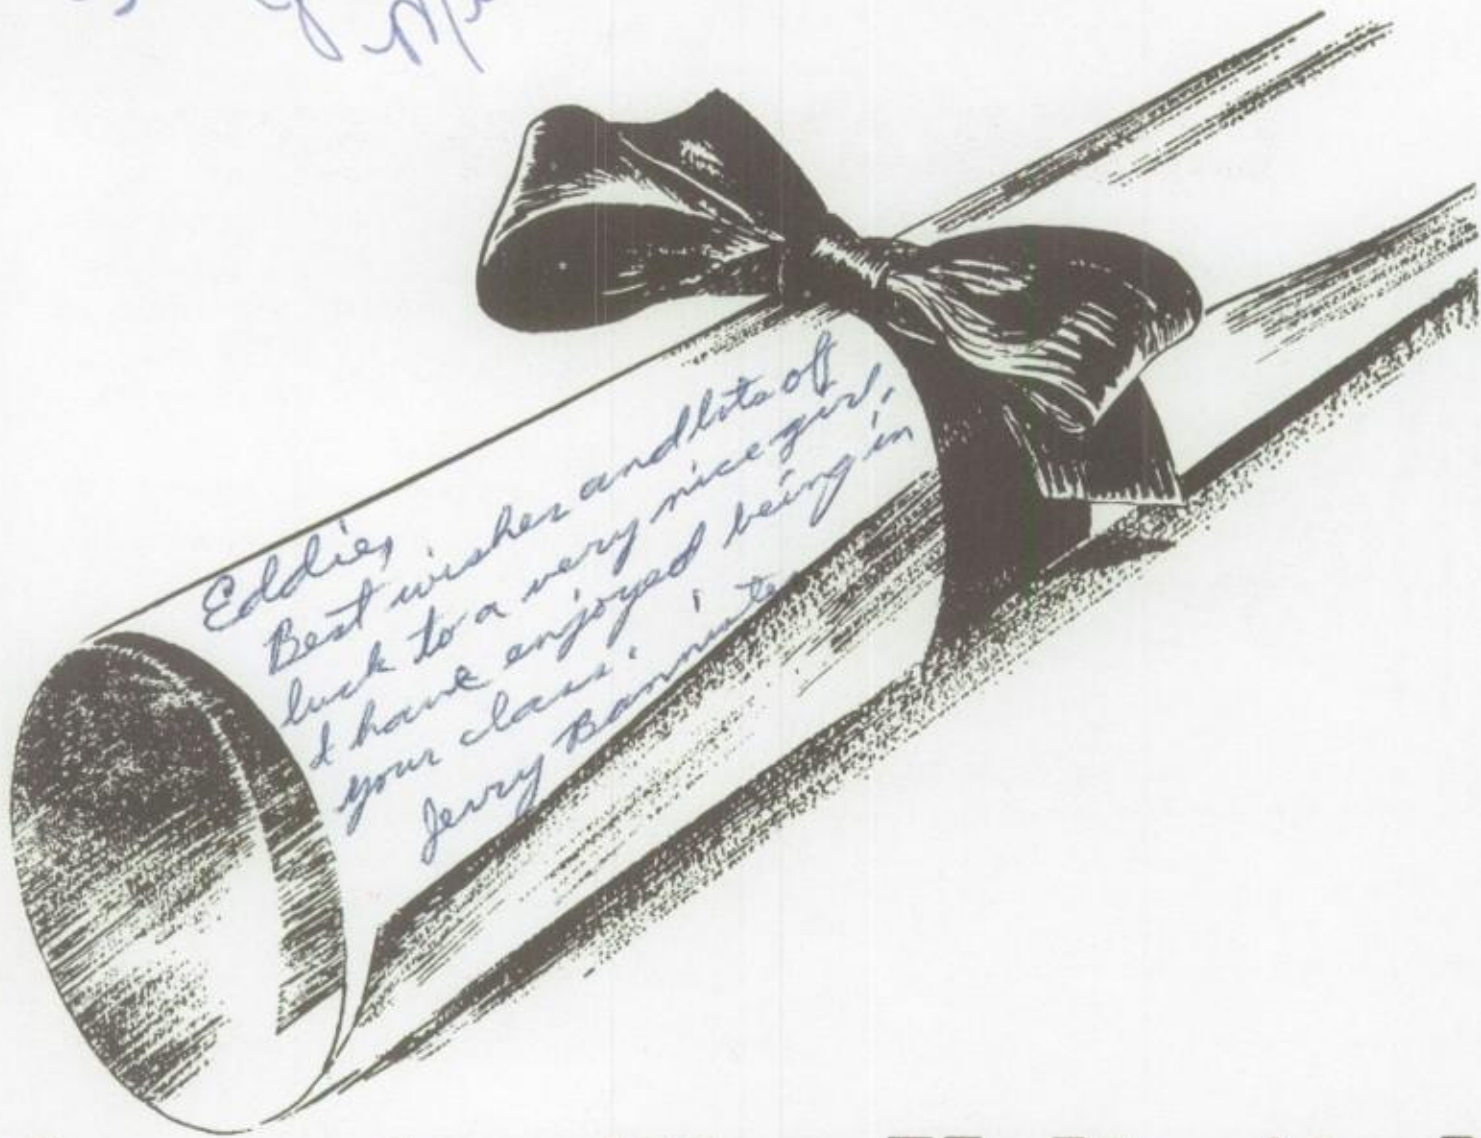 Eddie,
Best wishes and lots of
luck to a very nice girl,
I have enjoyed being in
your class.
Jerry Bannister